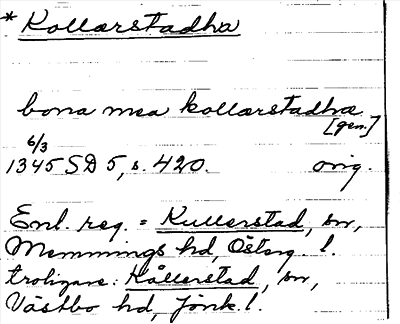 * Kollarstadha
bona mea kollarstadhæ
[gen.]
6/3
1345 SD 5, s. 420. orig.
Enl. reg. = Kullerstad, sn,
Memmings hd, Österg. l.
troligare: Kållerstad, sn,
Västbo hd, Jönk. l.